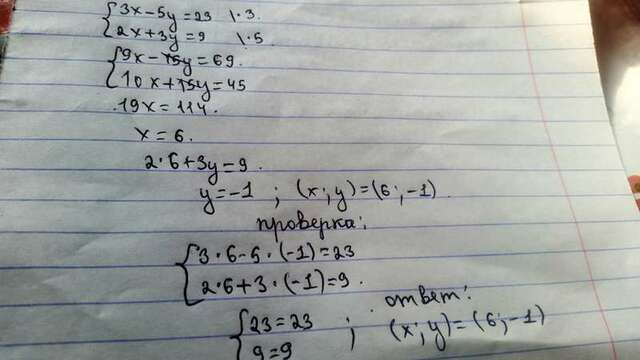 {3x-5y=23 |·3.
{2x+3y=9 |·5
{9x-15y=69.
{10x+15y=45
19x=114.
x=6.
2·6+3y=9.
y=-1 ; (x;y)=(6;-1).
проверка:
{3·6-5·(-1)=23
{2·6+3·(-1)=9.
ответ:
{23=23 ; (x;y)=(6;-1)
{9=9